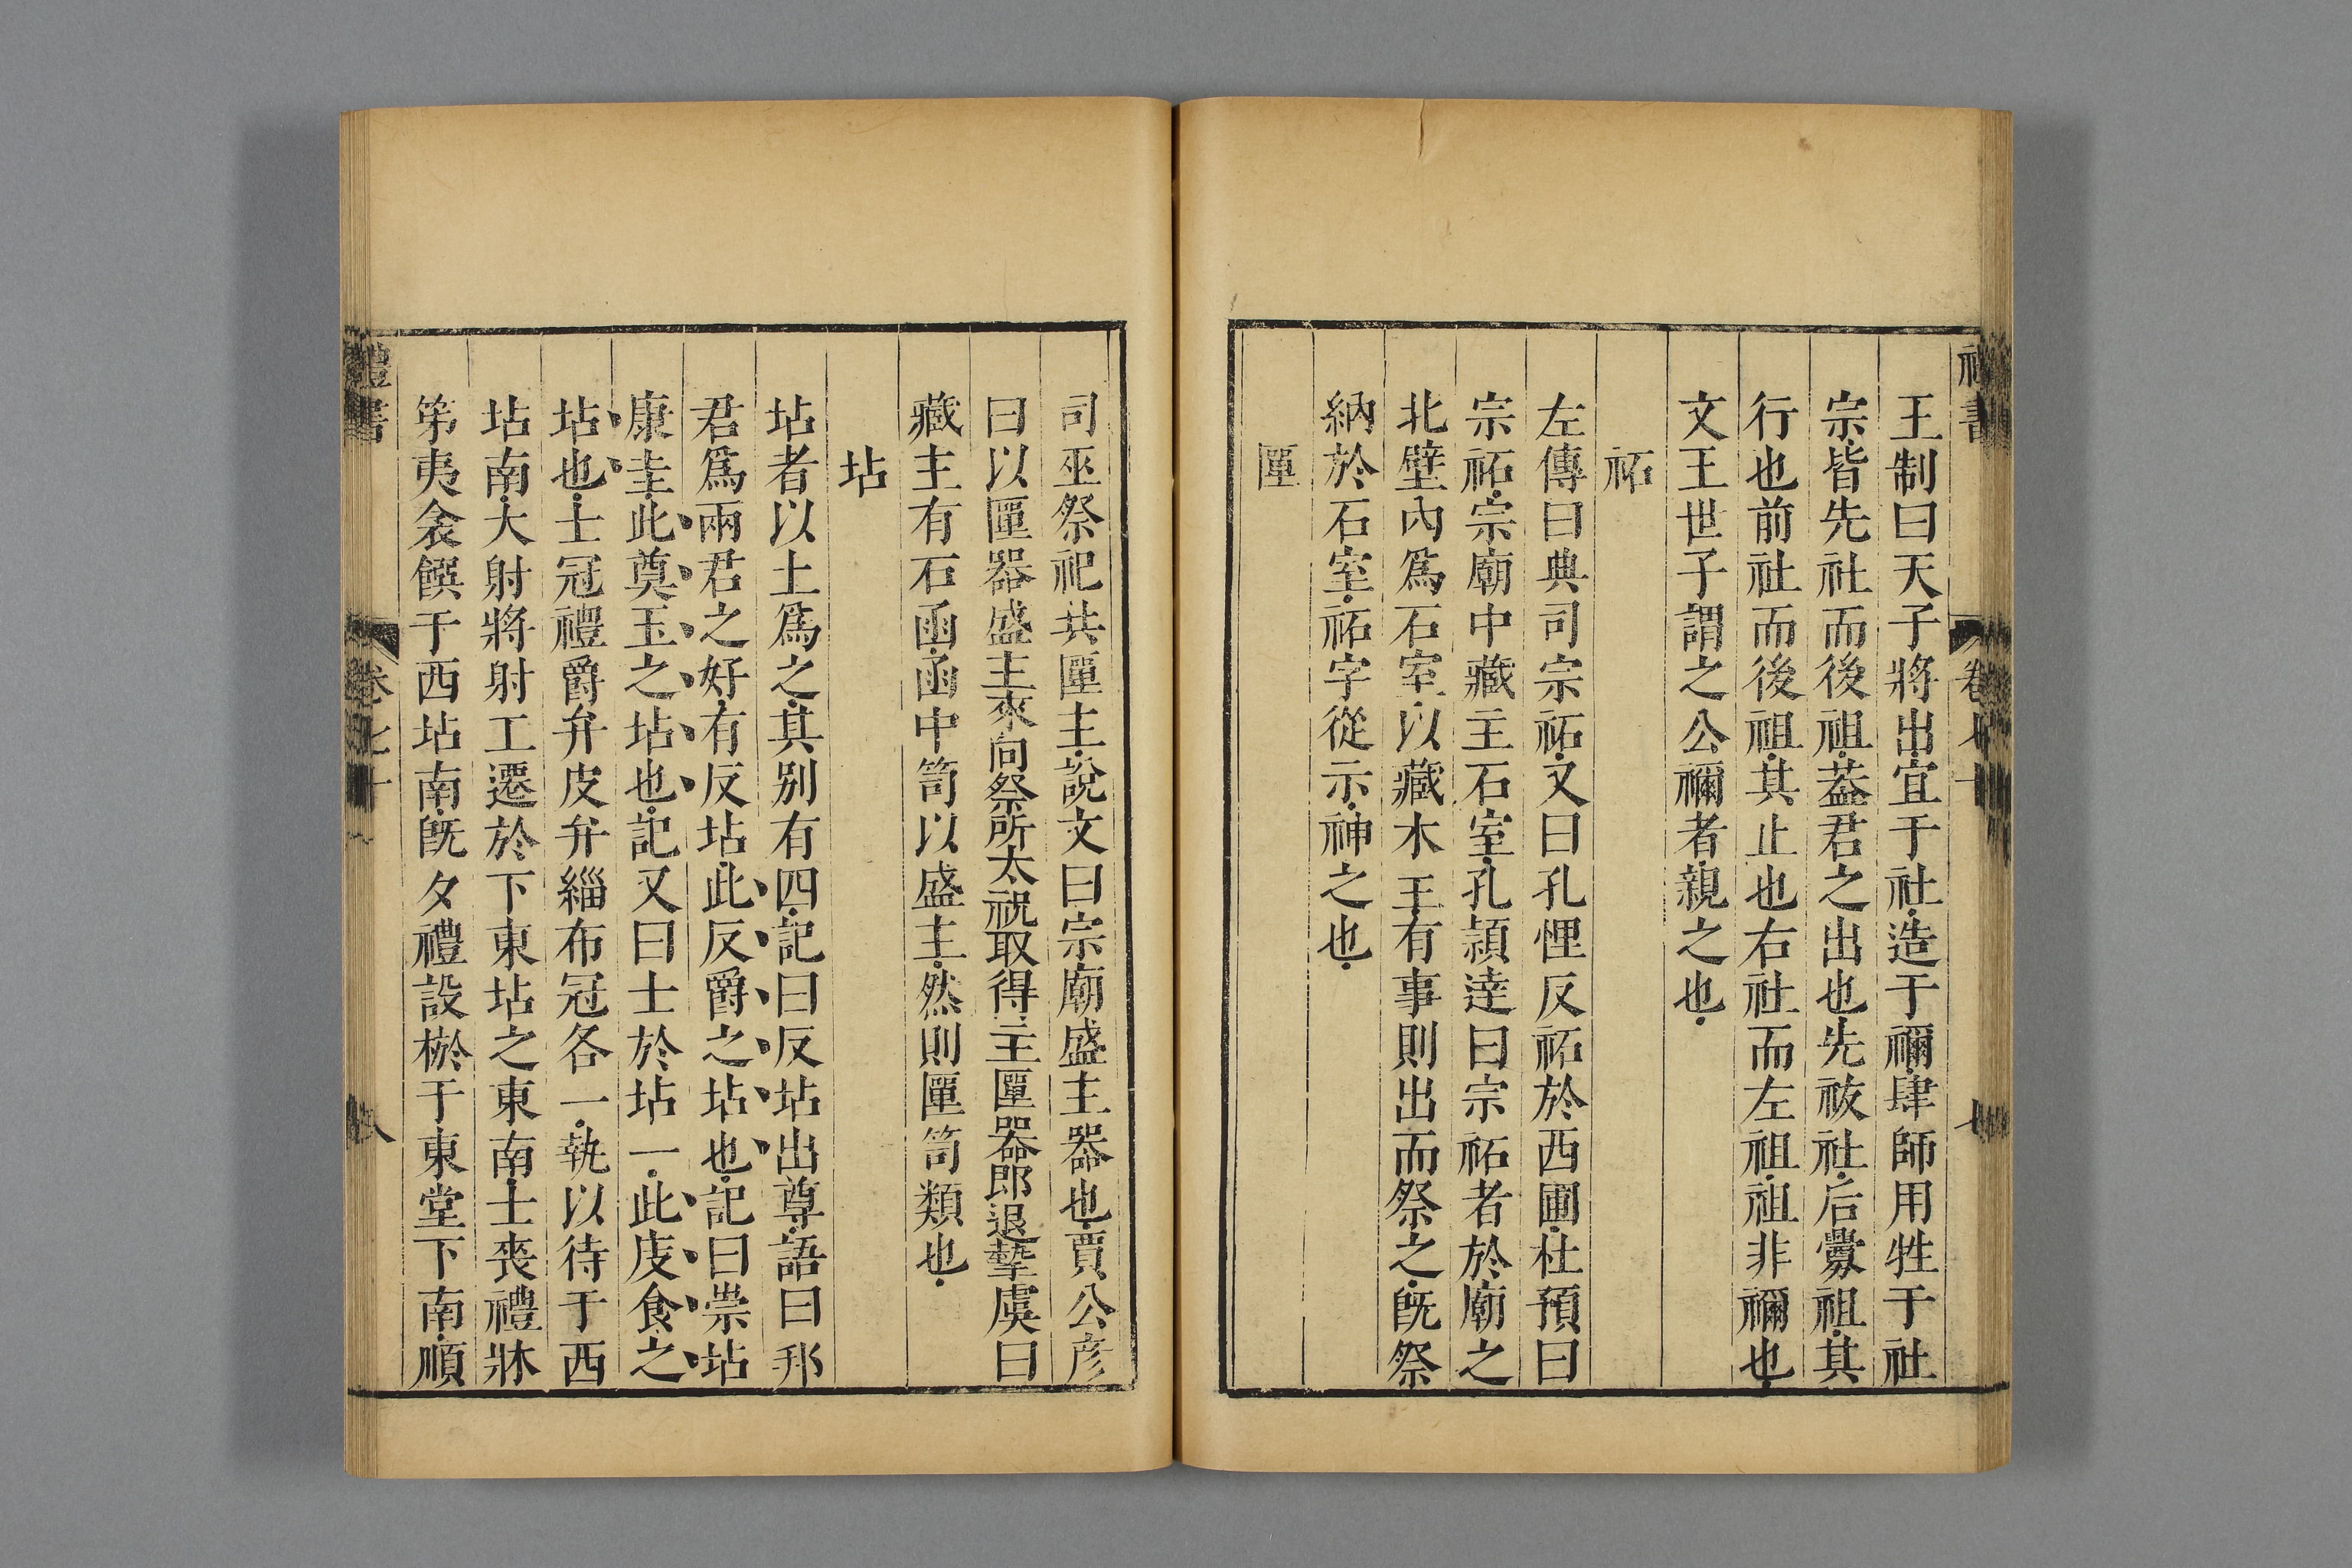 禮書
卷七十
七
王制曰天子將出宜于社造于禰肆師用牲于社
宗皆先社而後祖葢君之出也先祓社后釁祖其
行也前社而後祖其止也右社而左祖祖非禰也
文王世子謂之公禰者親之也
祏
左傳曰典司宗祏又曰孔悝反祏於西圃杜預曰
宗祏宗廟中藏主石室孔頴逹曰宗祏者於廟之
北壁內爲石室以藏木王有事則出而祭之旣祭
納於石室祏字從示神之也
匰
司巫祭祀共匰主說文曰宗廟盛主器也賈公彦
曰以匰器盛主來向祭所太祝取得主匰器即退摯虞曰
藏主有石函函中笥以盛主然則匰笥類也
坫
坫者以土爲之其别有四記曰反坫出尊語曰邦
君爲兩君之好有反坫此反爵之坫也記曰崇坫
康圭此奠玉之坫也記又曰士於坫一此庋食之
坫也士冠禮爵弁皮弁緇布冠各一執以待于西
坫南大射將射工遷於下東坫之東南士喪禮牀
笫夷衾饌于西坫南旣夕禮設棜于東堂下南順
禮書
卷七十
八